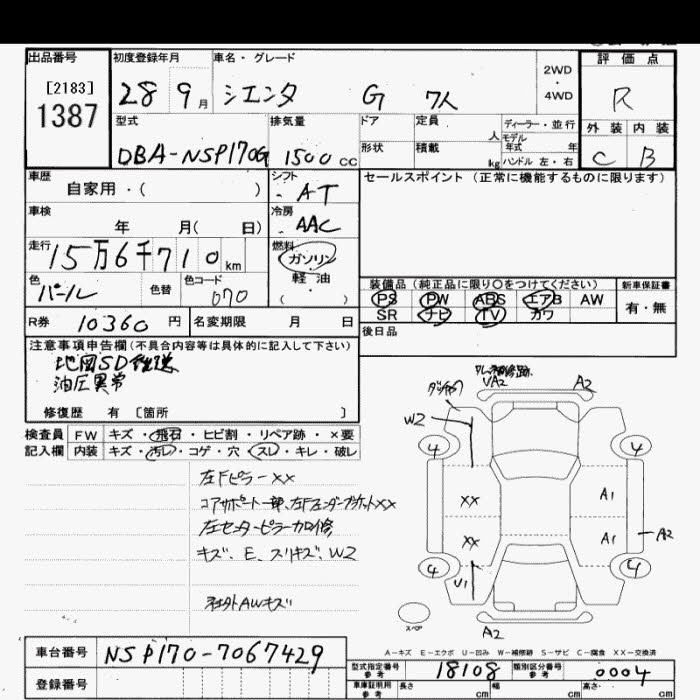 出品番号 初度登録年月 車名・グレード 評価点
[2183]
1387
28 9月 シエンタ G 7人 2WD・4WD R
型式 排気量 ドア 定員 人 ディーラー・並行 外装 内装
モデル年式 年
DBA-NSP170G 1500cc 形状 積載 kg ハンドル 左・右 C B
車歴 シフト セールスポイント(正常に機能するものに限ります)
自家用・( ) ・AT
車検 冷房
年 月( 日) ・AAC
走行 燃料
15万6千710km ガソリン
軽油
色 色替 色コード ・( )
パール 070
装備品(純正品に限り〇をつけてください) 新車保証書
PS PW ABS エアB AW 有・無
SR ナビ TV カワ
R券 10360円 名変期限 月 日 後日品
注意事項申告欄(不具合内容等は具体的に記入して下さい)
地図SD
油圧異常
修復歴 有 [箇所 ]
検査員 FW キズ・飛石・ヒビ割・リペア跡・×要
記入欄 内装 キズ・汚レ・コゲ・穴・スレ・キレ・破レ
左Fピラーxx
コアサポート一部、左Fフェンダーブラケットxx
左センターピラー加修
キズ、E、スリキズ、W2
社外AWキズ
UA2 A2
W2
4 4
xx A1
xx A1 A2
4 4
U1
スペア
A2
A-キズ E-エクボ U-凹み W-補修跡 S-サビ C-腐食 XX-交換済
車台番号 NSP170-7067429
登録番号
型式指定番号参考 18108 類別区分番号参考 0004
車庫証明用参考 長さ cm 幅 cm 高さ cm